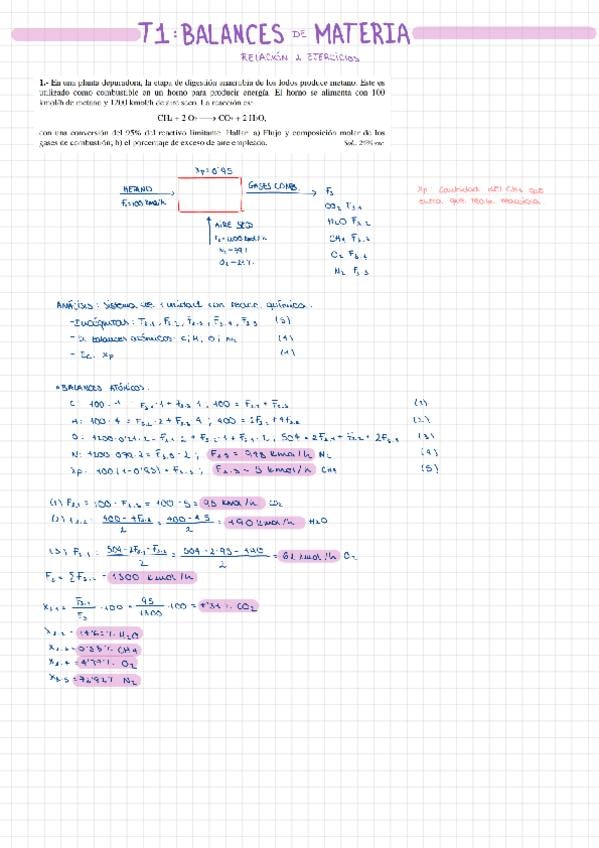 T1: BALANCES DE MATERIA
RELACIÓN 2 EJERCICIOS
1.- En una planta depuradora, la etapa de digestión anaerobia de los lodos produce metano. Este es
utilizado como combustible en un horno para producir energía. El horno se alimenta con 100
kmol/h de metano y 1200 kmol/h de aire seco. La reacción es:
CH₄ + 2 O₂ ⟶ CO₂ + 2 H₂O,
con una conversión del 95% del reactivo limitante. Hallar: a) Flujo y composición molar de los
gases de combustión; b) el porcentaje de exceso de aire empleado. Sol.: 26%
Xp=0'95
METANO
GASES COMB.
F₃
CO₂ F₃.₁
H₂O F₃.₂
CH₄ F₃.₃
O₂ F₃.₄
N₂ F₃.₅
F₁=100 kmol/h
AIRE SECO
F₂=1200 kmol/h
O₂-21%
Xp cantidad del CH₄ que
entra que
ANÁLISIS: Sistema de 1 unidad con reacc. química.
-Incógnitas: F₃.₁, F₃.₂, F₃.₃, F₃.₄, F₃.₅ (5)
balances atómicos: C, H, O, N (4)
- Ec. Xp (1)
•BALANCES ATÓMICOS.
C: 100·1 = F₃.₁·1 + F₃.₃·1; 100 = F₃.₁ + F₃.₃ (1)
H: 100·4 = F₃.₂·2 + F₃.₃·4; 400 = 2F₃.₂ + 4F₃.₃ (2)
O: 1200·0'21·2 = F₃.₁·2 + F₃.₂·1 + F₃.₄·2; 504 = 2F₃.₁ + F₃.₂ + 2F₃.₄ (3)
N: 1200·0'79·2 = F₃.₅·2; F₃.₅ = 948 kmol/h N₂ (4)
Xp: 100(1-0'95) = F₃.₃; F₃.₃ = 5 kmol/h CH₄ (5)
(1) F₃.₁ = 100 - F₃.₃ = 100 - 5 = 95 kmol/h CO₂
(2) F₃.₂ = 400-4F₃.₃/2 = 400-4·5/2 = 190 kmol/h H₂O
(3) F₃.₄ = 504-2F₃.₁-F₃.₂/2 = 504-2·95-190/2 = 62 kmol/h O₂
F₃ = ΣF₃.ᵢ = 1300 kmol/h
X₃.₁ = F₃.₁/F₃ ·100 = 95/1300 ·100 = 7'31% CO₂
X₃.₂ = 14'62% H₂O
X₃.₃ = 0'38% CH₄
X₃.₄ = 4'77% O₂
X₃.₅ = 72'92% N₂